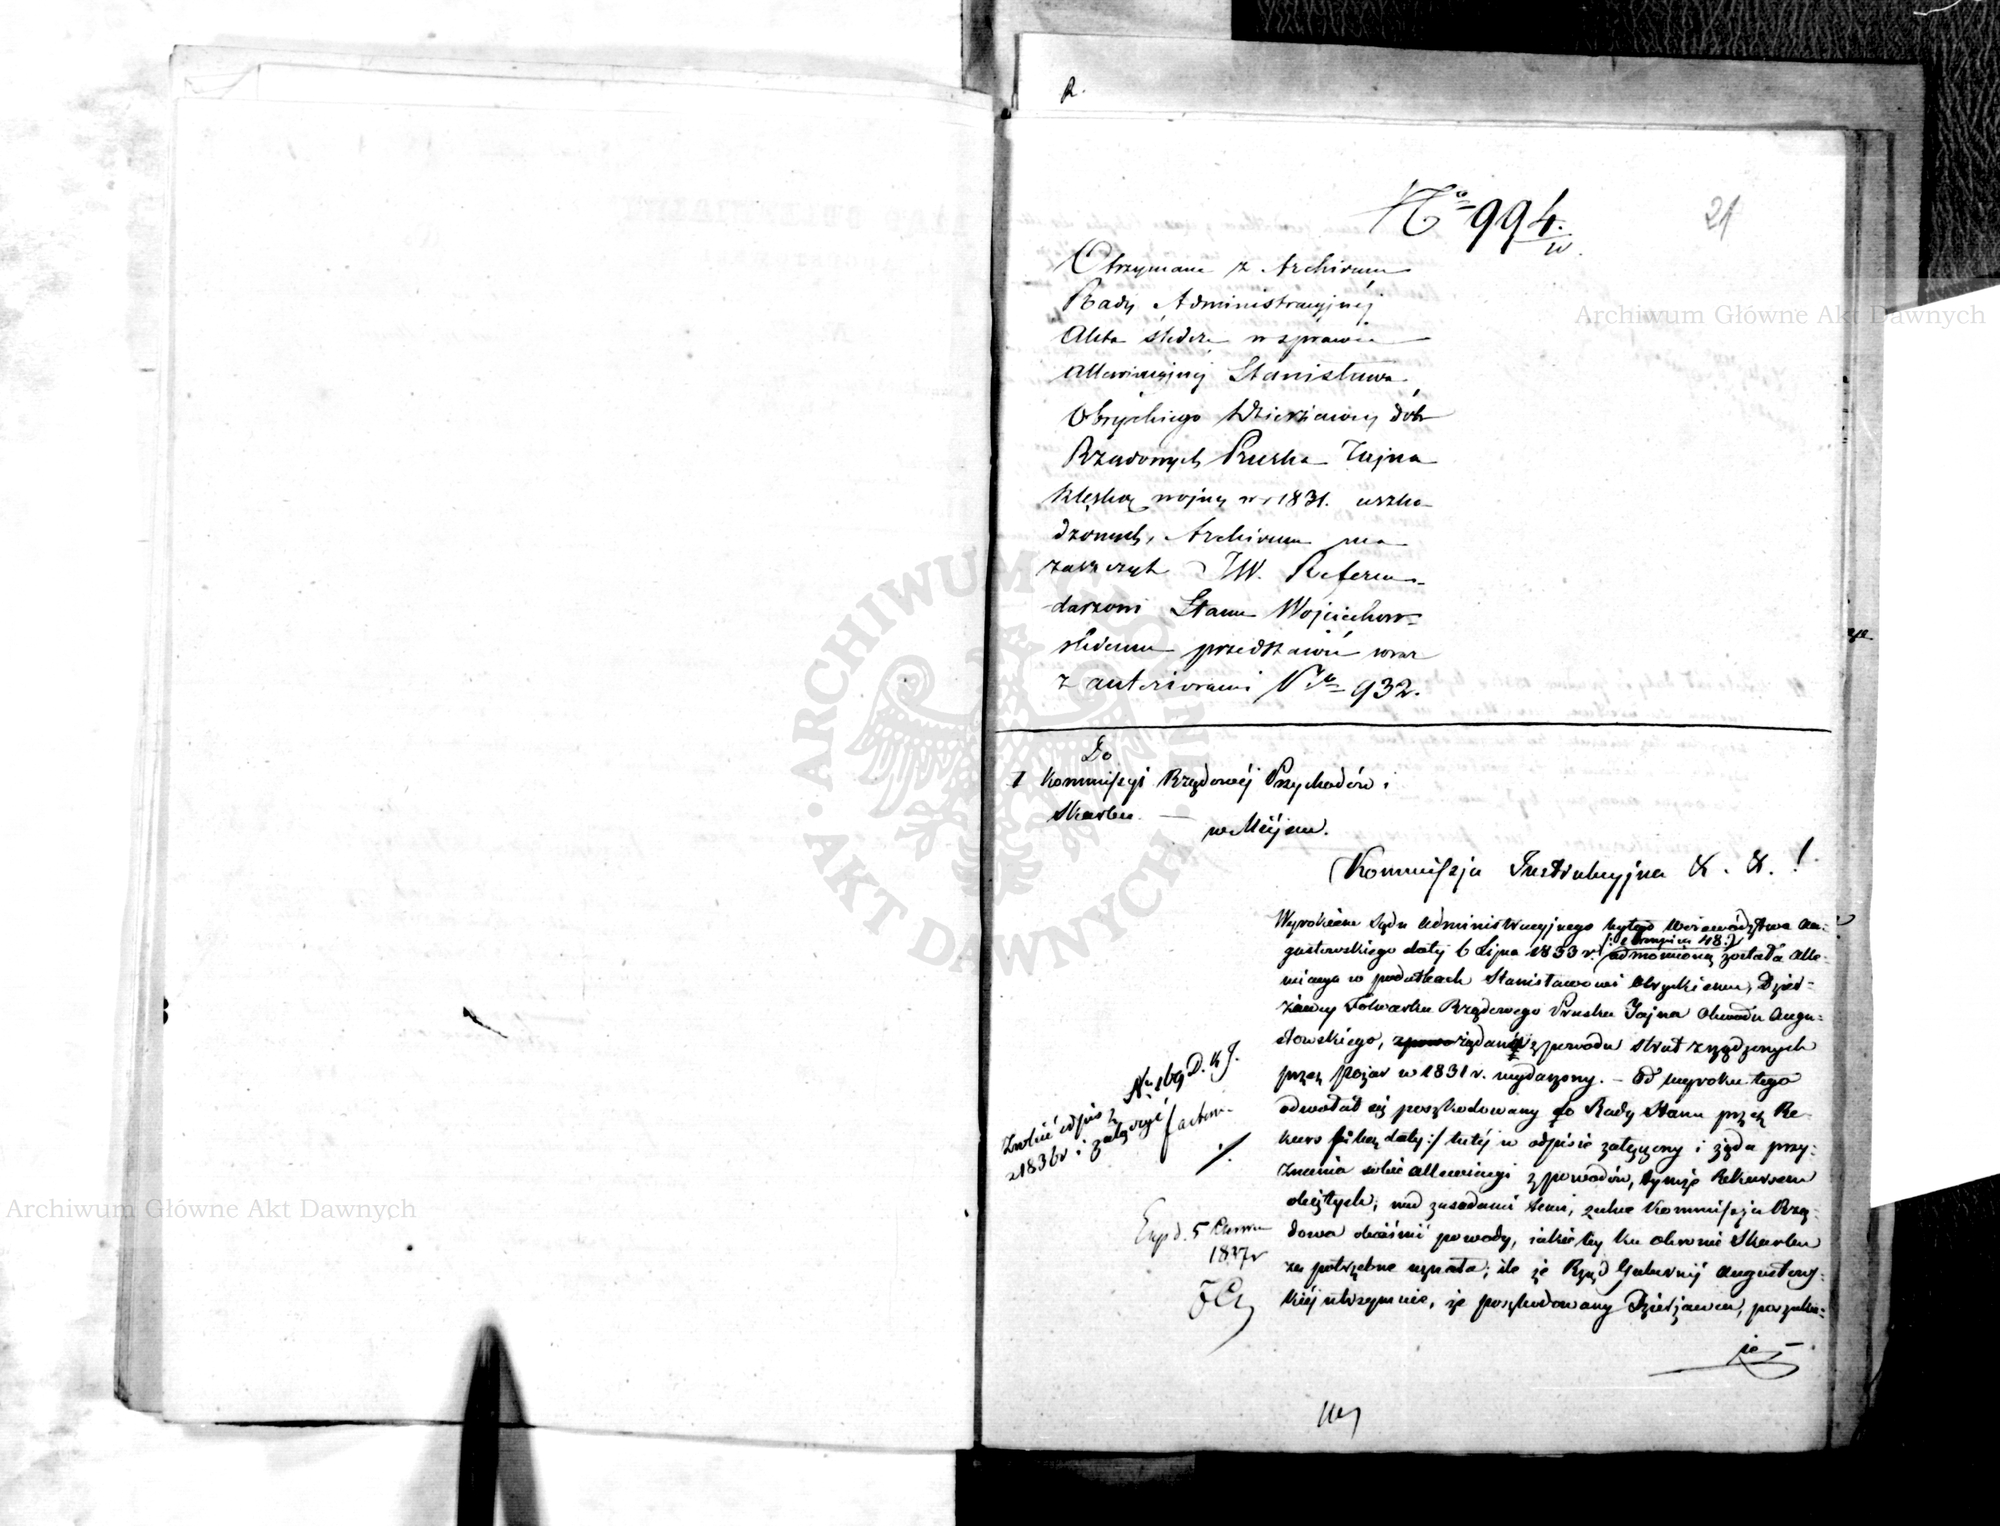 R.
№ 994.
w.
21
Otrzymane z Archiwum
Rady Administracyjnej
Akta śledcze w sprawie
allewiacyjnej Stanisława
Obryckiego Dzierżawcy dóbr
Rządowych Pruska Tajna
klęską wojny w r 1831. uszko-
dzonych, Archiwum ma
zaszczyt JW. Referen-
darzowi Stanu Wojciechow-
skiemu przedstawić wraz
z anteriorami Nro 932.
Do
1 Kommissyi Rządowéj Przychodów i
Skarbu.
w Miejscu.
Kommissja Instrukcyjna & . & . !
Wyrokiem Sądu Administracyjnego byłego Województwa Au-
gustowskiego daty 6 Lipca 1833 r. odmówioną została Alle-
wiacya w podatkach Stanisławowi Obryckiemu, Dzier-
żawcy Folwarku Rządowego Pruska Tajna Obwodu Augu-
stowskiego, żądana z powodu strat zrządzonych
przez pożar w 1831 r. wydarzony. – Od wyroku tego
odwołał się poszkodowany do Rady Stanu przez Re-
kurs /: bez daty :/ tutéj w odpisie załączony i żąda przy-
znania sobie allewiacyi z powodów, tymże Rekursem
objętych; nad zasadami temi, zechce Kommissja Rzą-
dowa objaśnić powody, jakieby ku obronie Skarbu
za potrzebne uznała; ile że Rząd Gubernij Augustows-
kiéj utrzymuje, że poszkodowany Dzierżawca, poszuku-
je
No 169 D. K J.
Zrobić odpis z
r 1836 i załączyć
Exp d. 5 Czerwca
1837 r
Archiwum Główne Akt Dawnych
Archiwum Główne Akt Dawnych
· ARCHIWUM GŁÓWNE · AKT DAWNYCH ·